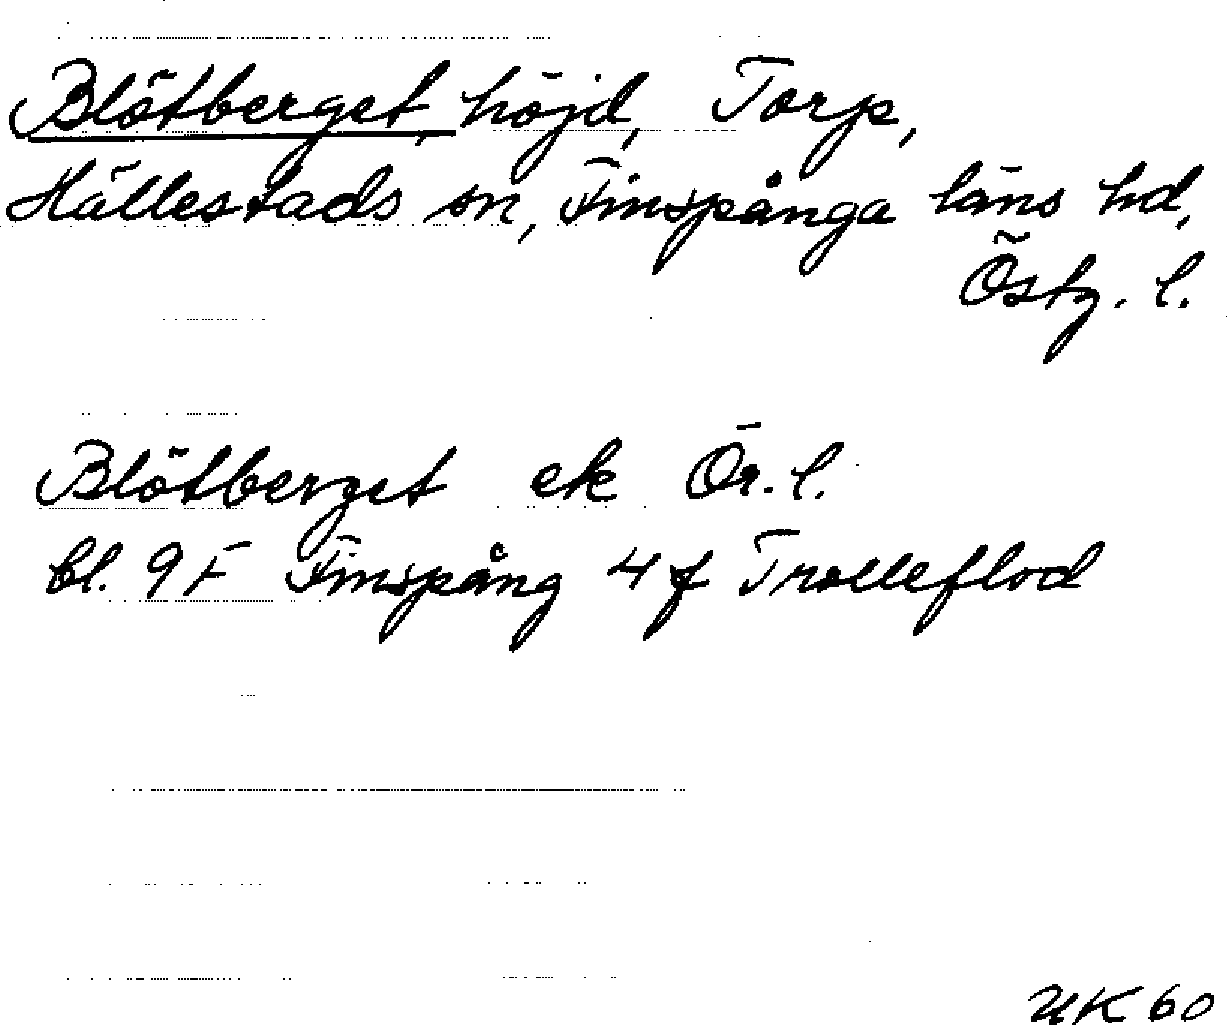 Blötberget, höjd, Torp,
Hällestads sn, Finspånga läns hd,
Östg. l.
Blötberget ek Ör. l.
bl. 9 F Finspång 4 f Trolleflod
UK 60